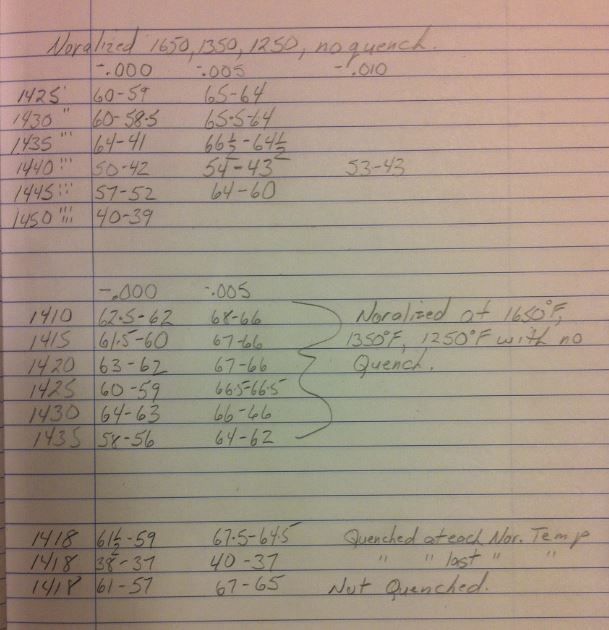 Noralized 1650, 1350, 1250, no quench.
-.000 -.005 -.010
1425' 60-59 65-64
1430 " 60-58.5 65.5-64
1435 ''' 64-41 66½-64½
1440 !!! 50-42 54-43 53-43
1445 !!! 57-52 64-60
1450 !!! 40-39
-.000 -.005
1410 62.5-62 68-66 Noralized at 1650°F,
1415 61.5-60 67-66 1350°F, 1250°F with no
1420 63-62 67-66 Quench.
1425 60-59 66.5-66.5
1430 64-63 66-66
1435 58-56 64-62
1418 61½-59 67.5-64.5 Quenched at each Nor. Temp
1418 38-37 40-37 " " last " "
1418 61-57 67-65 Not Quenched.